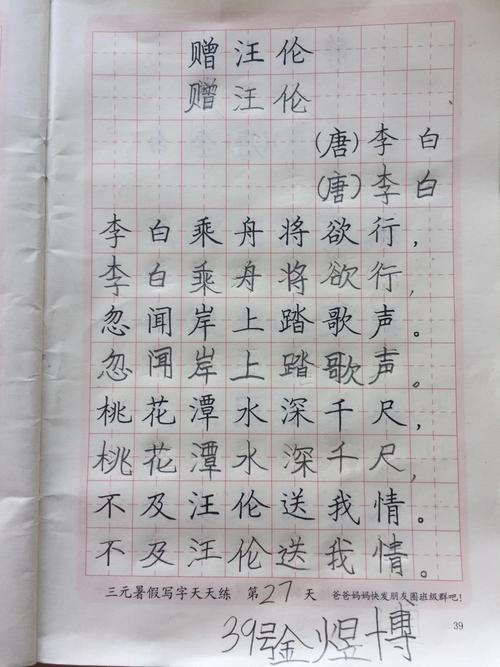 赠汪伦
赠汪伦
(唐)李白
(唐)李白
李白乘舟将欲行，
李白乘舟将欲行，
忽闻岸上踏歌声。
忽闻岸上踏歌声。
桃花潭水深千尺，
桃花潭水深千尺，
不及汪伦送我情。
不及汪伦送我情。
三元暑假写字天天练 第27天 爸爸妈妈快发朋友圈班级群吧！
39
39号金煜博